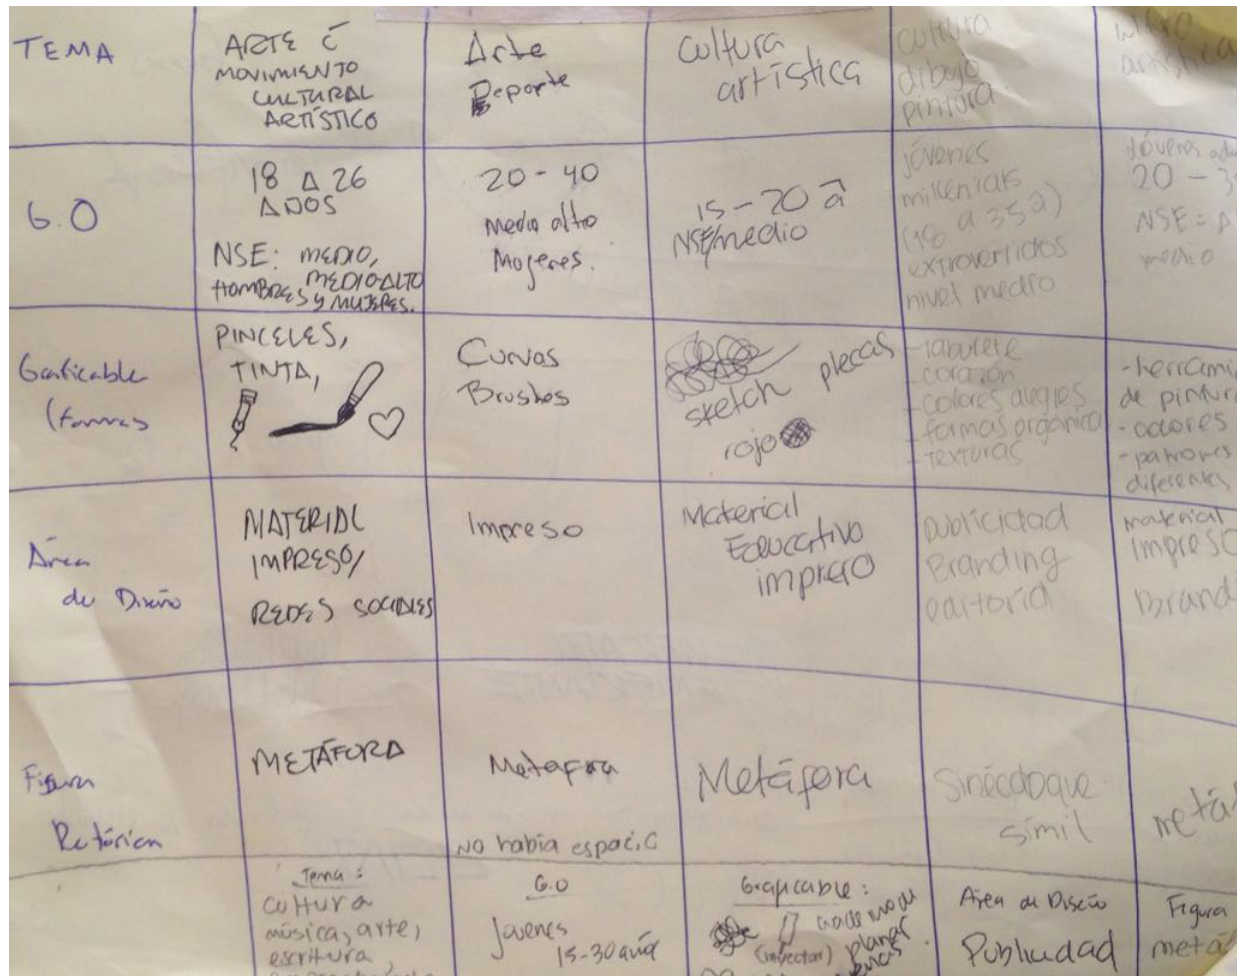 TEMA
ARTE Ć
MOVIMIENTO
CULTURAL
ARTÍSTICO
Arte
Deporte
Cultura
artística
cultura
dibujo
pintura
artística
G.O
18 A 26
AÑOS
NSE: MEDIO,
MEDIO-ALTO
HOMBRES Y MUJERES.
20 - 40
Medio alto
Mujeres.
15 - 20 a
NSE/medio
jóvenes
millenials
(18 a 35 a)
extrovertidos
nivel medio
jóvenes
20 - 3
NSE: A
medio
Graficable
(formas
PINCELES,
TINTA,
Curvas
Brushes
plecas
sketch
rojo
- taburete
- corazón
- colores
- formas orgánica
- texturas
- herrami
de pintura
- colores
- patrones
diferentes
Área
de Diseño
MATERIAL
IMPRESO/
REDES SOCIALES
Impreso
Material
Educativo
impreso
Publicidad
Branding
material
Impreso
Brand
Figura
Retórica
METÁFORA
Metafora
No había espacio
Metáfora
Sinécdoque
símil
metá
Tema:
cultura
música, arte,
escritura,
G.O
Jovenes
15-30 
Graficable:
Área de Diseño
Publicidad
Figura
metá